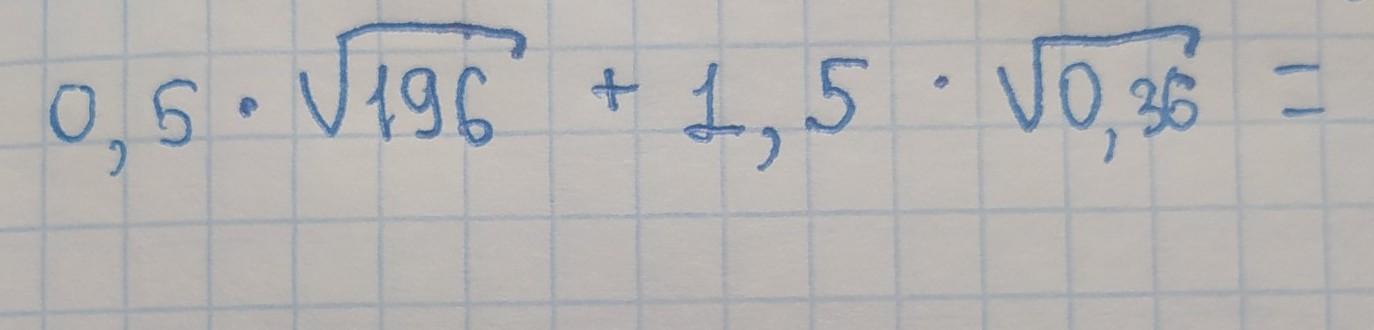 0,5 · √196 + 1,5 · √0,36 =